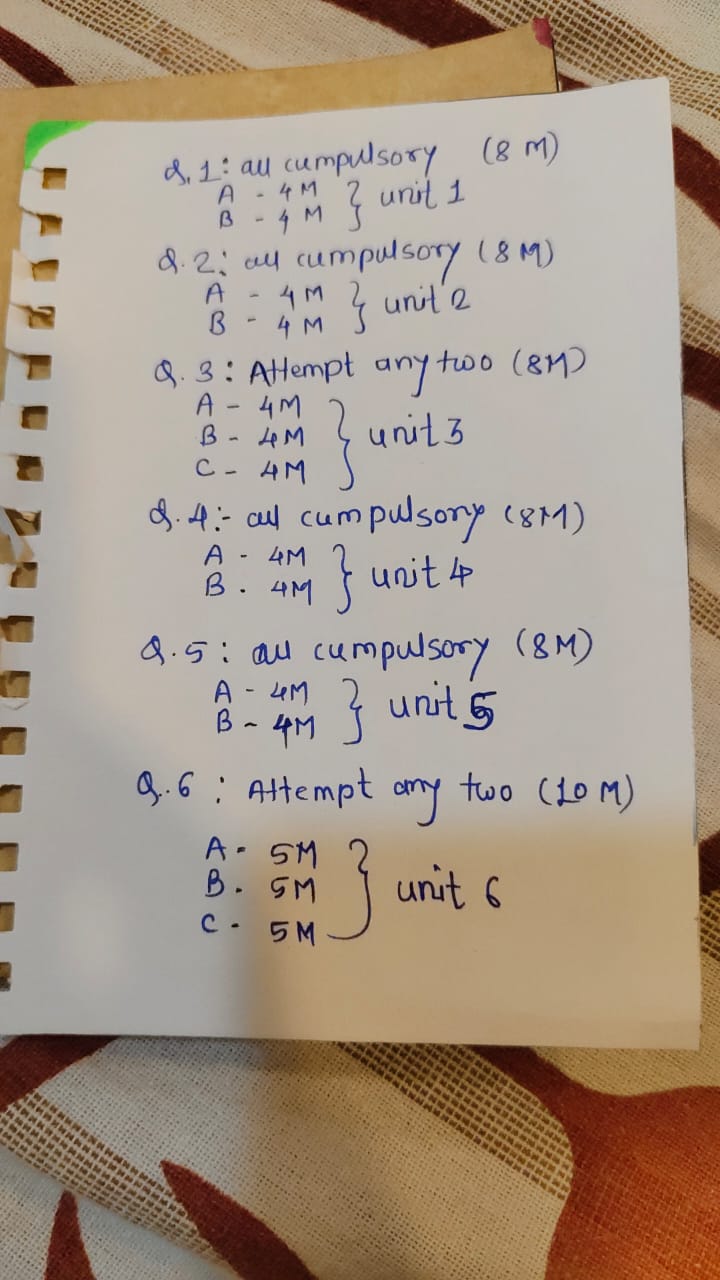 Q.1: all cumpulsory (8 M)
A - 4 M
B - 4 M } unit 1
Q.2: all cumpulsory (8 M)
A - 4 M
B - 4 M } unit 2
Q.3: Attempt any two (8M)
A - 4M
B - 4M } unit 3
C - 4M
Q.4:- all cumpulsory (8M)
A - 4M
B. 4M } unit 4
Q.5: all cumpulsory (8M)
A - 4M
B - 4M } unit 5
Q.6: Attempt any two (10 M)
A - 5M
B. 5M } unit 6
C - 5M